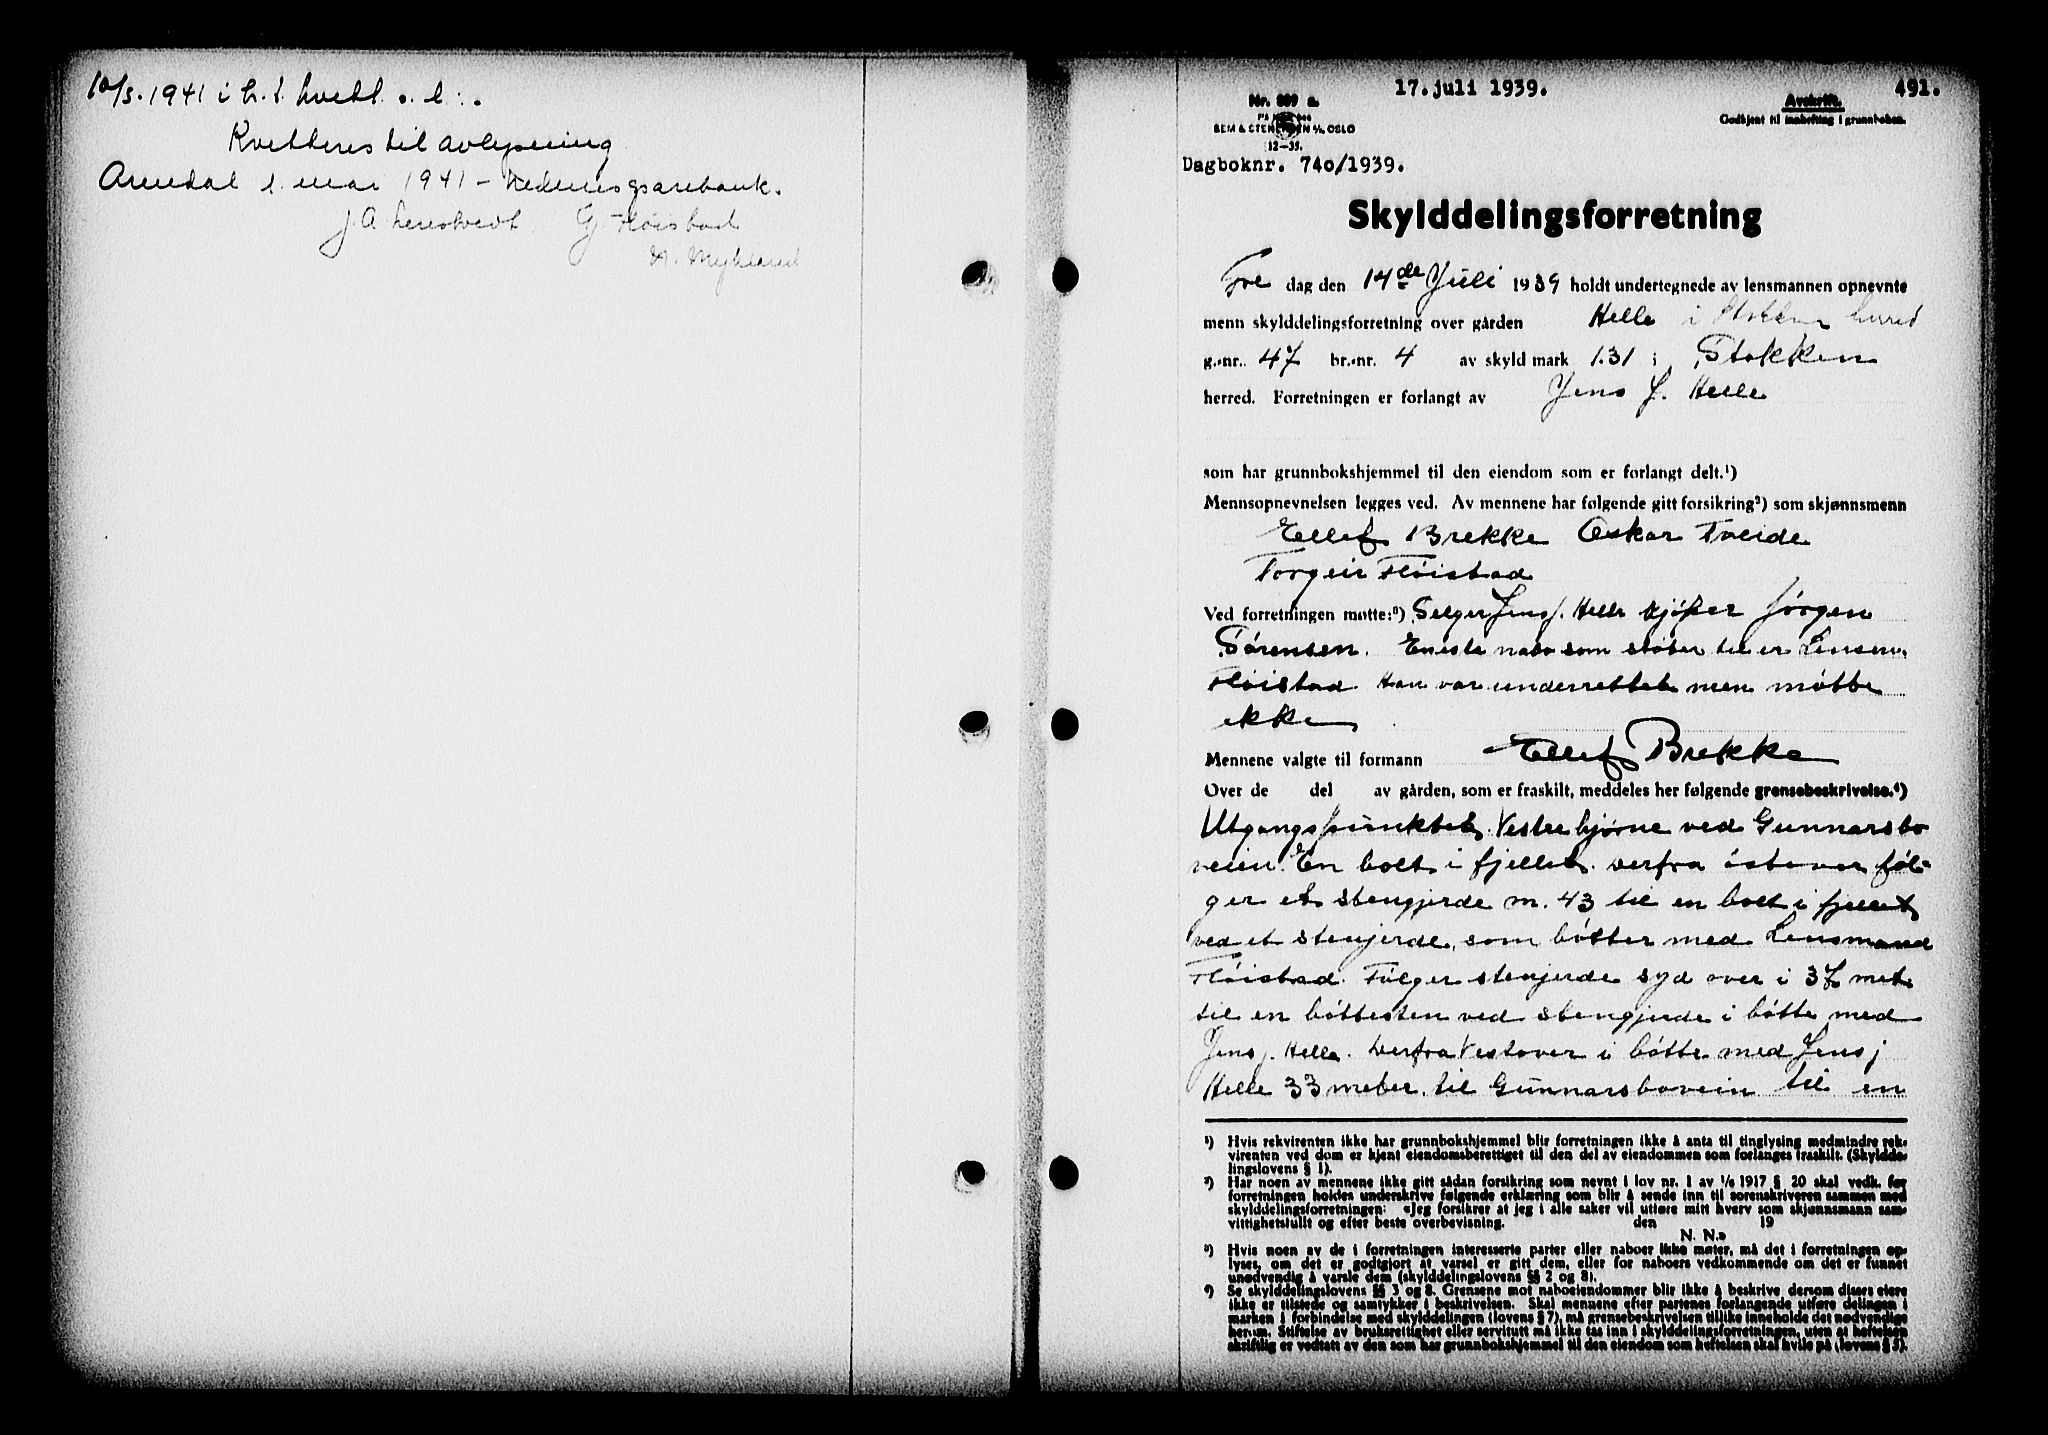 10/5. 1941 i h. t. kvitt.
Kvitteres til avlysning
Arendal 1. mai 1941 –
J. A. G. Fløistad
17. juli 1939. 491.
Nr. 899 a. Avskrift.
SEM & STENERSEN A/S, OSLO Godkjent til innhefting i grunnboken.
12–35.
Dagboknr. 740/1939.
Skylddelingsforretning
Fre dag den 14de Juli 1939 holdt undertegnede av lensmannen opnevnte
menn skylddelingsforretning over gården Helle i Stokken herred
g.-nr. 47 br.-nr. 4 av skyld mark 1.31 i Stokken
herred. Forretningen er forlangt av Jens J. Helle
som har grunnbokshjemmel til den eiendom som er forlangt delt.¹)
Mennsopnevnelsen legges ved. Av mennene har følgende gitt forsikring²) som skjønnsmenn
Ellef Brekke Oskar Tveide
Torgeir Fløistad
Ved forretningen møtte:³) Selger Jens J. Helle kjøper Jørgen
Sørensen. Eneste nabo som støter til er Lensm.
Fløistad Han var underrettet men møtte
ikke
Mennene valgte til formann Ellef Brekke
Over de del av gården, som er fraskilt, meddeles her følgende grensebeskrivelse.⁴)
Utgangspunktet Vestre hjørne ved Gunnarsbo
veien. En bolt i fjellet. Derfra østover føl-
ger et stengjerde m. 43 til en bolt i fjellet
ved et stenjerde, som bøtter med Lensmand
Fløistad. Følger stenjerde syd over i 37 met.
til en bøttesten ved stengjerde i bøtte med
Jens J. Helle. Derfra Vestover i bøtte med Jens J
Helle 33 meter. til Gunnarsboveien til en
¹) Hvis rekvirenten ikke har grunnbokshjemmel blir forretningen ikke å anta til tinglysing medmindre rek-
virenten ved dom er kjent eiendomsberettiget til den del av eiendommen som forlanges fraskilt. (Skyldde-
lingslovens § 1).
²) Har noen av mennene ikke gitt sådan forsikring som nevnt i lov nr. 1 av 1/6 1917 § 20 skal vedk. før
forretningen holdes underskrive følgende erklæring som blir å sende inn til sorenskriveren sammen med
skylddelingsforretningen: «Jeg forsikrer at jeg i alle saker vil utføre mitt hverv som skjønnsmann sam-
vittighetsfullt og efter beste overbevisning. den 19
N. N.»
³) Hvis noen av de i forretningen interesserte parter eller naboer ikke møter, må det i forretningen op-
lyses, om det er godtgjort at varsel er gitt dem, eller for naboers vedkommende om det er funnet
unødvendig å varsle dem (skylddelingslovens §§ 2 og 8).
⁴) Se skylddelingslovens §§ 3 og 8. Grensene mot naboeiendommer blir ikke å beskrive dersom disses eiere
ikke er tilstede og samtykker i beskrivelsen. Skal mennene efter partenes forlangende utføre delingen i
marken i forbindelse med skylddelingen (lovens § 7), må grensebeskrivelsen tillike inneholde det nødvendige
herom. Stiftelse av bruksrettighet eller servitutt må ikke tas inn i skylddelingsforretningen, uten at heftelsen
skriftlig er vedtatt av den som har grunnbokshjemmel til den eiendom som heftelsen skal hvile på (lovens § 5).